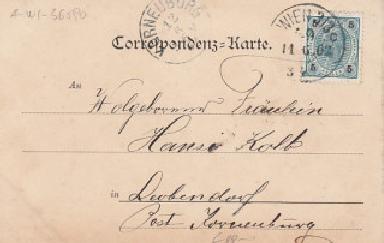 4-WI-56
KORNEUBURG
12
WIEN
14 6 02
5 5
Correspondenz-Karte.
An
Wolgeborenen Fräulein
Hansi Kolb
in
Leobendorf
Post Korneuburg